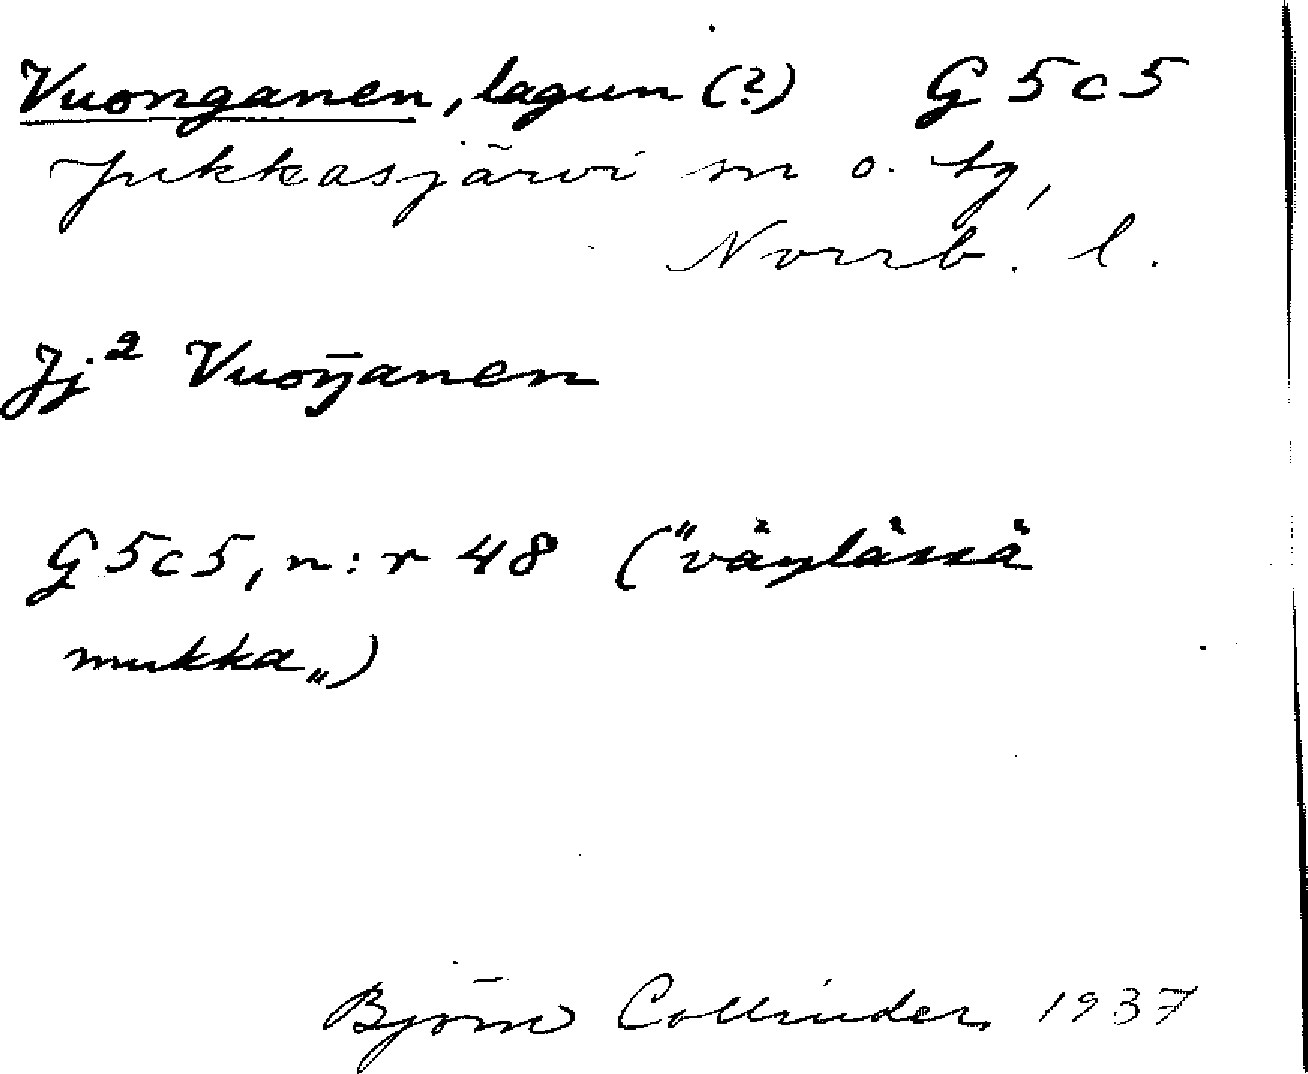 Vuonganen, lagun (?) G 5 c 5
Jukkasjärvi sn o. tg,
Norrb. l.
Jj² Vuoŋ̄anen
G 5 c 5, n:r 48 ("väylässä
mukka„)
Björn Collinder 1937